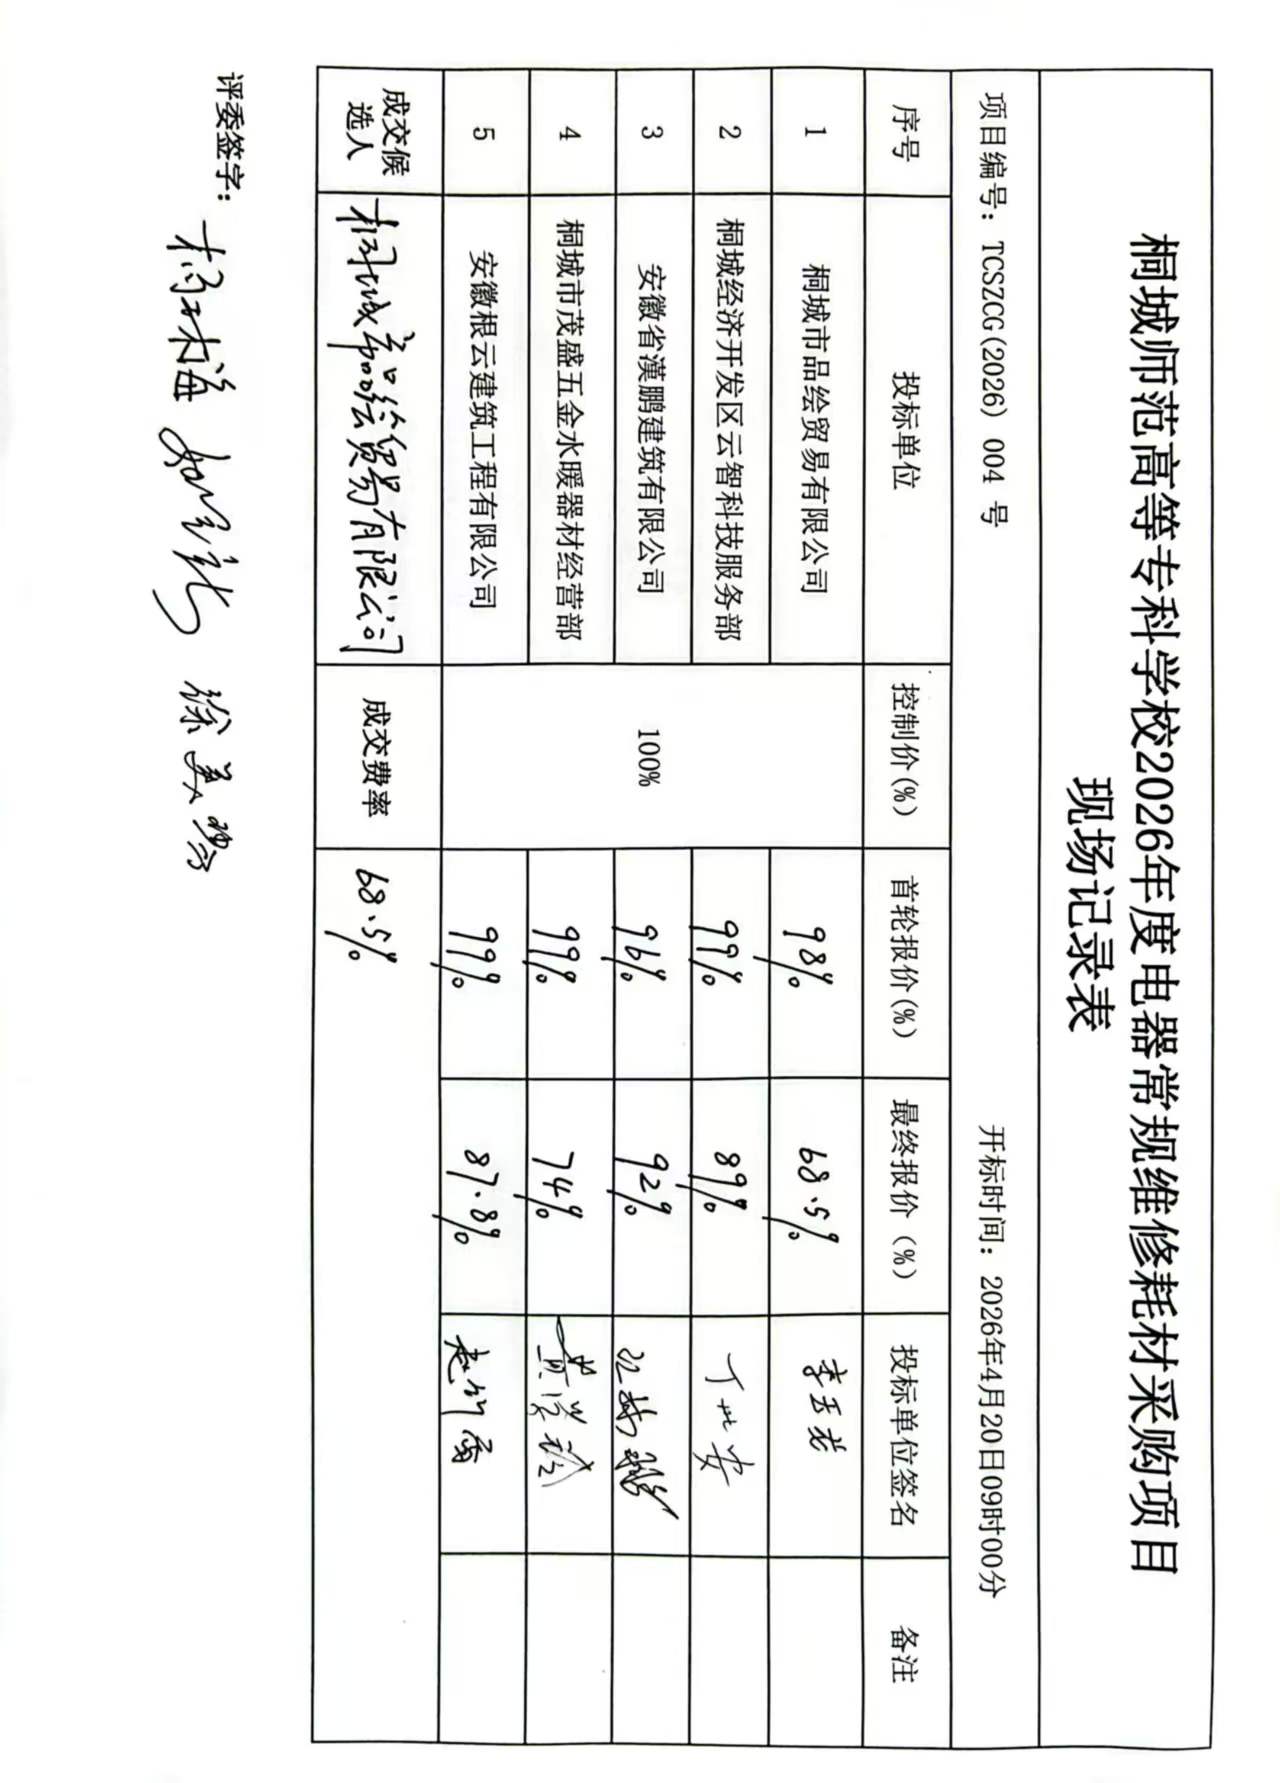 桐城师范高等专科学校2026年度电器常规维修耗材采购项目
现场记录表
项目编号：TCSZCG(2026) 004 号 开标时间：2026年4月20日09时00分
序号 投标单位 控制价(%) 首轮报价(%) 最终报价（%） 投标单位签名 备注
1 桐城市品绘贸易有限公司 100% 98% 68.5%
2 桐城经济开发区云智科技服务部 99% 89%
3 安徽省漢鹏建筑有限公司 96% 92%
4 桐城市茂盛五金水暖器材经营部 99% 74%
5 安徽根云建筑工程有限公司 99% 87.8%
成交候选人 桐城市品绘贸易有限公司 成交费率 68.5%
评委签字：